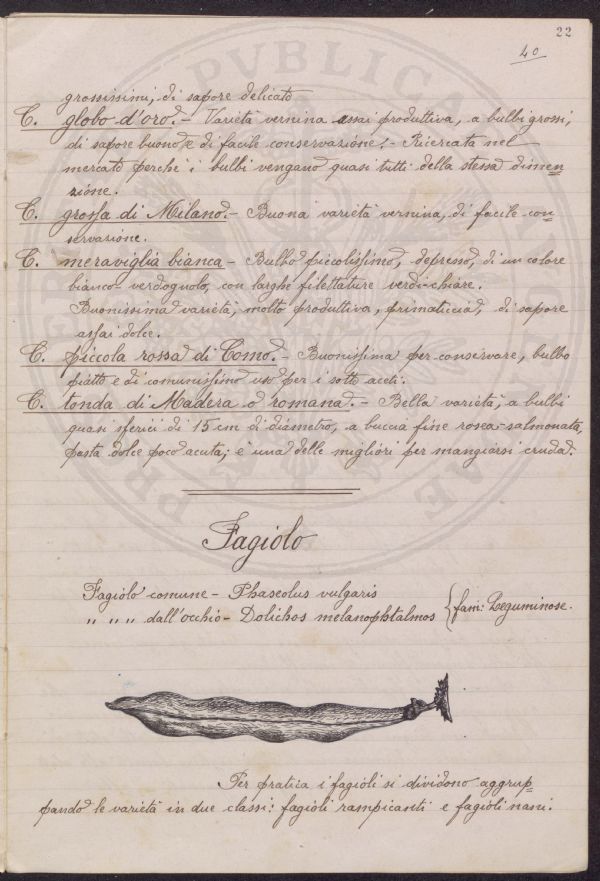 22
40
grossissimi, di sapore delicato
C. globo d'oro. - Varietà vernina assai produttiva, a bulbi grossi,
di sapore buono e di facile conservazione. - Ricercata nel
mercato perchè i bulbi vengano quasi tutti della stessa dimen=
zione.
C. grossa di Milano. - Buona varietà vernina, di facile con=
servazione.
C. meraviglia bianca - Bulbo piccolissimo, depresso, di un colore
bianco-verdognolo, con larghe filettature verdi-chiare.
Buonissima varietà, molto produttiva, primaticcia, di sapore
assai dolce.
C. piccola rossa di Como. - Buonissima per conservare, bulbo
piatto e di comunissimo uso per i sotto aceti.
C. tonda di Madera o romana. - Bella varietà, a bulbi
quasi sferici di 15 cm di diametro, a buccia fine rosea-salmonata,
pasta dolce poco acuta; è una delle migliori per mangiarsi cruda.
Fagiolo
Fagiolo comune - Phaseolus vulgaris
" " " dall'occhio - Dolichos melanophtalmos { fam: Leguminose.
Per pratica i fagioli si dividono aggrup=
pando le varietà in due classi: fagioli rampicanti e fagioli nani.